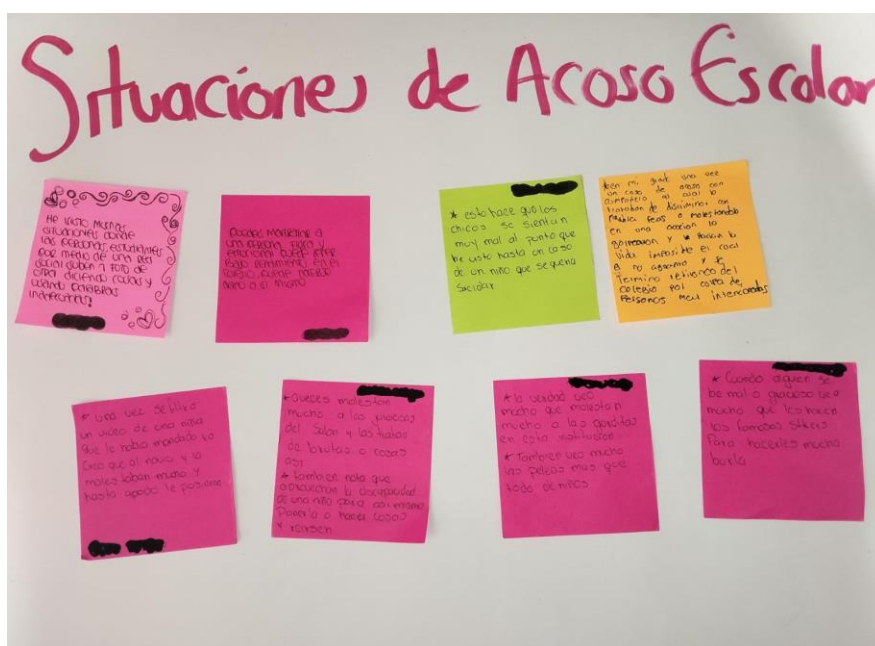 Situaciones de Acoso Escolar
He visto muchas
situaciones donde
las personas, estudiantes
por medio de una red
social suben 1 foto de
otra diciendo cosas y
usando palabras
inadecuadas!
una persona, física y
emocional
bajo rendimiento en el
daño a si mismo
* esto hace que los
chicos se sientan
muy mal al punto que
he visto hasta un caso
de un niño que se queria
suicidar
*en mi una vez
un caso de acoso con
compañero al cual lo
trataban de discriminar con
feas o molestandolo
en una ocasion lo
golpearon y le hacian la
vida imposible el cual
el no aguanto y se
termino retirando del
colegio por culpa de
personas mal intencionadas
* una vez se filtro
un video de una niña
que le habia mandado yo
creo que al novio y la
molestaban mucho y
hasta apodo le pusieron
* Aveces molestan
mucho a las
del salon y las tratan
de brutas o cosas
asi
* tambien noto que
aprovechan la discapacidad
de una niña para asi mismo
ponerla a hacer cosas
y reirsen
* la verdad veo
mucho que molestan
mucho a las gorditas
en esta institucion
* Tambien veo mucho
las peleas mas que
todo de niñas
* Cuando alguien se
be mal o gracioso veo
mucho que les hacen
los famosos stikers
para hacerles mucha
burla